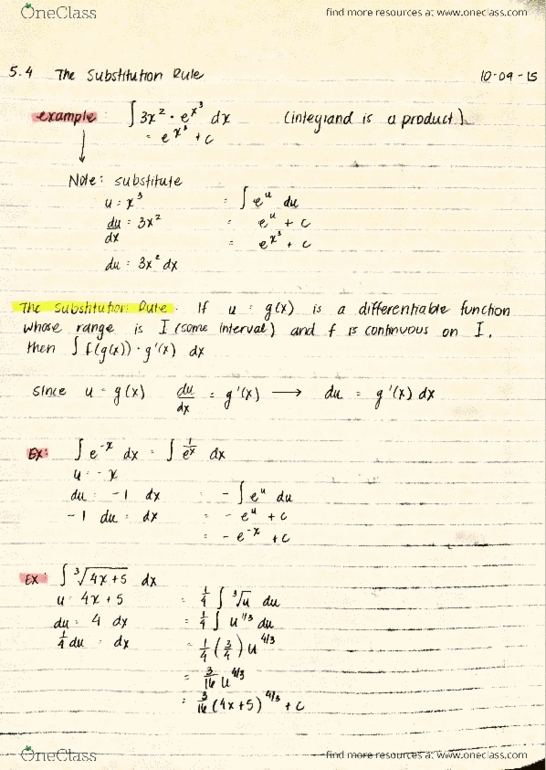 OneClass
find more resources at www.oneclass.com
5.4 The Substitution Rule 10-09-15
example: ∫ 3x² · e^x³ dx (integrand is a product)
= e^x³ + c
Note: substitute
u = x³ = ∫ e^u du
du/dx = 3x² = e^u + c
= e^x³ + c
du = 3x² dx
The Substitution Rule: If u = g(x) is a differentiable function
whose range is I (some interval) and f is continuous on I,
then ∫ f(g(x)) · g'(x) dx
since u = g(x) du/dx = g'(x) → du = g'(x) dx
Ex: ∫ e^-x dx = ∫ 1/e^x dx
u = -x
du = -1 dx = - ∫ e^u du
-1 du = dx = - e^u + c
= - e^-x + c
Ex: ∫ ³√4x+5 dx
u = 4x + 5 = 1/4 ∫ ³√u du
du = 4 dx = 1/4 ∫ u^1/3 du
1/4 du = dx = 1/4 (3/4) u^4/3
= 3/16 u^4/3
= 3/16 (4x+5)^4/3 + c
OneClass
find more resources at www.oneclass.com